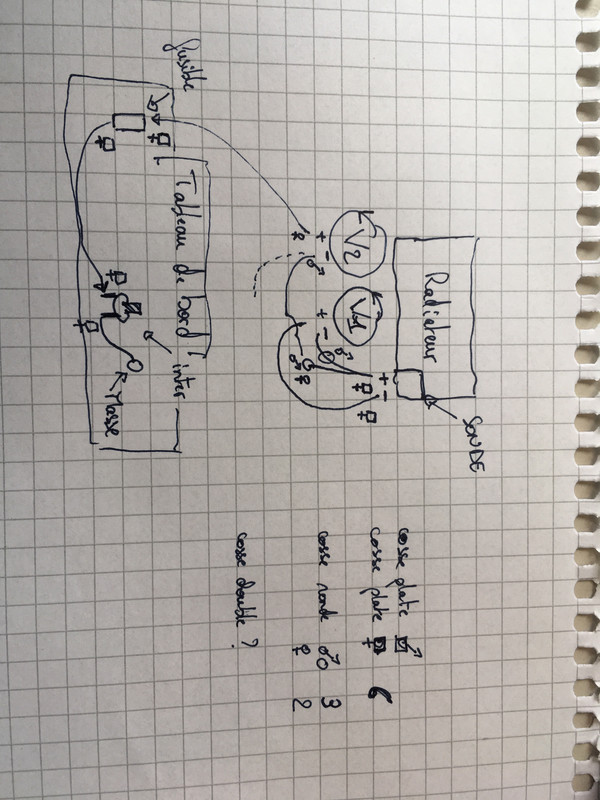 Radiateur
SONDE
+ -
V2
V1
+ -
+ -
fusible
Tableau de bord
inter
Masse
cosse plate ♂
cosse plate ♀ 6
cosse ronde ♂ 3
♀ 2
cosse double ?